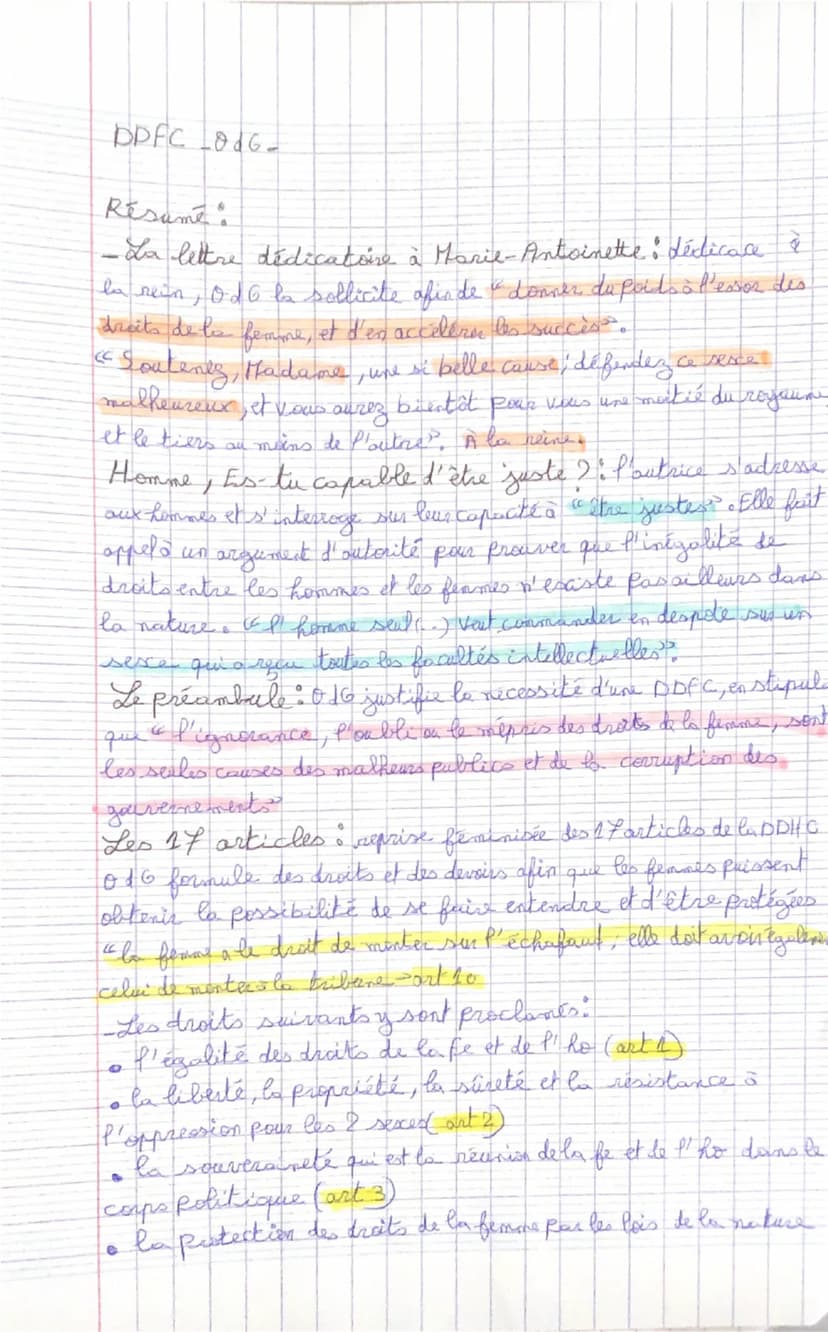 DDFC - OdG -
Résumé :
- La lettre dédicatoire à Marie-Antoinette : dédicace à
la rein, OdG la sollicite afin de "donner du poids à l'essor des
droits de la femme, et d'en accélérer les succès".
"Soutenez, Madame, une si belle cause ; défendez ce sexe
malheureux, et vous aurez bientôt pour vous une moitié du royaume
et le tiers au moins de l'autre". À la reine.
Homme, Es-tu capable d'être juste ? : l'autrice s'adresse
aux hommes et s'interroge sur leur capacité à "être justes". Elle fait
appel à un argument d'autorité pour prouver que l'inégalité de
droits entre les hommes et les femmes n'existe pas ailleurs dans
la nature. "l'homme seul (..) veut commander en despote sur un
sexe qui a reçu toutes les facultés intellectuelles".
Le préambule : OdG justifie la nécessité d'une DDFC, en stipula
que "l'ignorance, l'oubli ou le mépris des droits de la femme, sont
les seules causes des malheurs publics et de la corruption des
gouvernements"
Les 17 articles : reprise féminisée des 17 articles de la DDHC
OdG formule des droits et des devoirs afin que les femmes puissent
obtenir la possibilité de se faire entendre et d'être protégées
"la femme a le droit de monter sur l'échafaut ; elle doit avoir égaleme
celui de monter à la tribune → art 10
- Les droits suivants y sont proclamés :
• l'égalité des droits de la fe et de l'ho (art 1)
• la liberté, la propriété, la sûreté et la résistance à
l'oppression pour les 2 sexes (art 2)
• la souveraineté qui est la réunion de la fe et de l'ho dans le
corps politique (art 3)
• la protection des droits de la femme par les lois de la nature